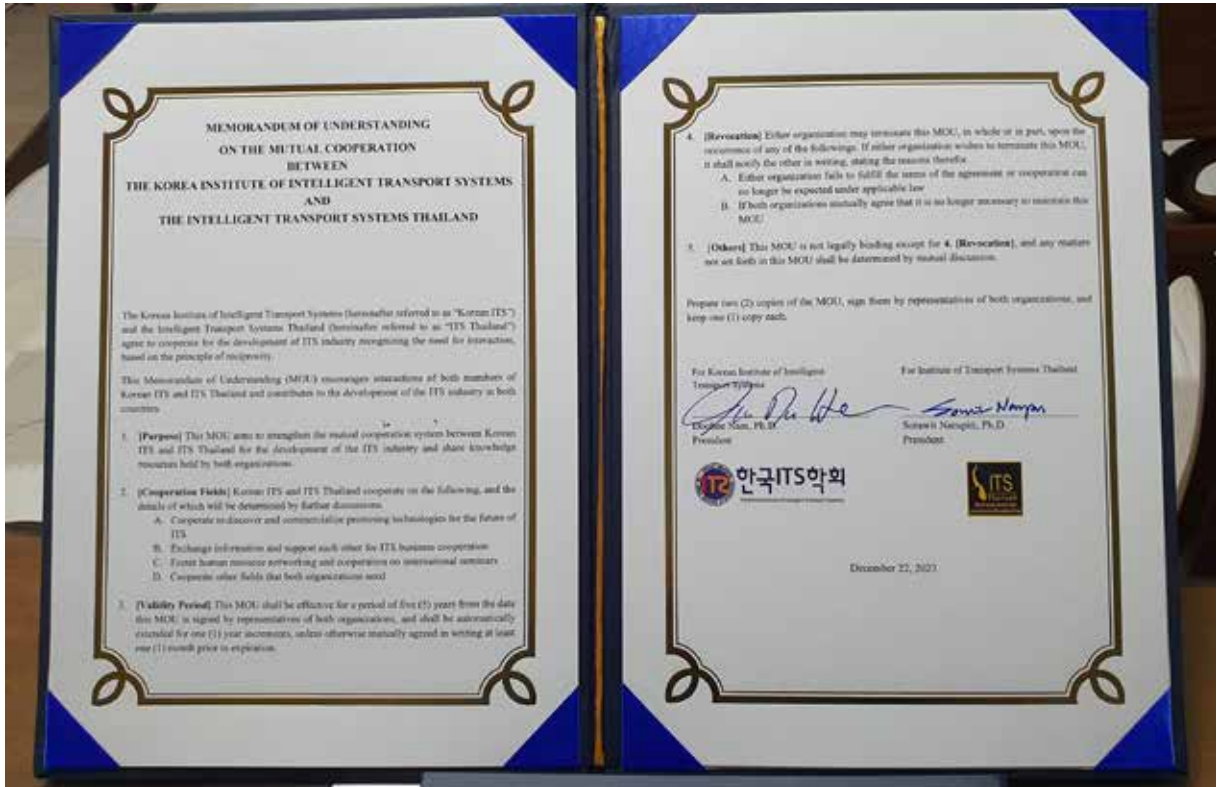 MEMORANDUM OF UNDERSTANDING
ON THE MUTUAL COOPERATION
BETWEEN
THE KOREA INSTITUTE OF INTELLIGENT TRANSPORT SYSTEMS
AND
THE INTELLIGENT TRANSPORT SYSTEMS THAILAND
The Korean Institute of Intelligent Transport Systems (hereinafter referred to as "Korean ITS")
and the Intelligent Transport Systems Thailand (hereinafter referred to as "ITS Thailand")
agree to cooperate for the development of ITS industry recognizing the need for interaction,
based on the principle of reciprocity.
This Memorandum of Understanding (MOU) encourages interactions of both members of
Korean ITS and ITS Thailand and contributes to the development of the ITS industry in both
countries.
1. [Purpose] This MOU aims to strengthen the mutual cooperation system between Korean
ITS and ITS Thailand for the development of the ITS industry and share knowledge
resources held by both organizations.
2. [Cooperation Fields] Korean ITS and ITS Thailand cooperate on the following, and the
details of which will be determined by further discussions.
A. Cooperate to discover and commercialize promising technologies for the future of
ITS
B. Exchange information and support each other for ITS business cooperation
C. Foster human resource networking and cooperation on international seminars
D. Cooperate other fields that both organizations need
3. [Validity Period] This MOU shall be effective for a period of five (5) years from the date
this MOU is signed by representatives of both organizations, and shall be automatically
extended for one (1) year increments, unless otherwise mutually agreed in writing at least
one (1) month prior to expiration.
4. [Revocation] Either organization may terminate this MOU, in whole or in part, upon the
occurrence of any of the followings. If either organization wishes to terminate this MOU,
it shall notify the other in writing, stating the reasons therefor.
A. Either organization fails to fulfill the terms of the agreement or cooperation can
no longer be expected under applicable law
B. If both organizations mutually agree that it is no longer necessary to maintain this
MOU
5. [Others] This MOU is not legally binding except for 4. [Revocation], and any matters
not set forth in this MOU shall be determined by mutual discussion.
Prepare two (2) copies of the MOU, sign them by representatives of both organizations, and
keep one (1) copy each.
For Korean Institute of Intelligent
Transport Systems
For Institute of Transport Systems Thailand
Doohee Nam, Ph.D.
President
Sorawit Narupiti, Ph.D.
President
한국ITS학회
ITS
December 22, 2023